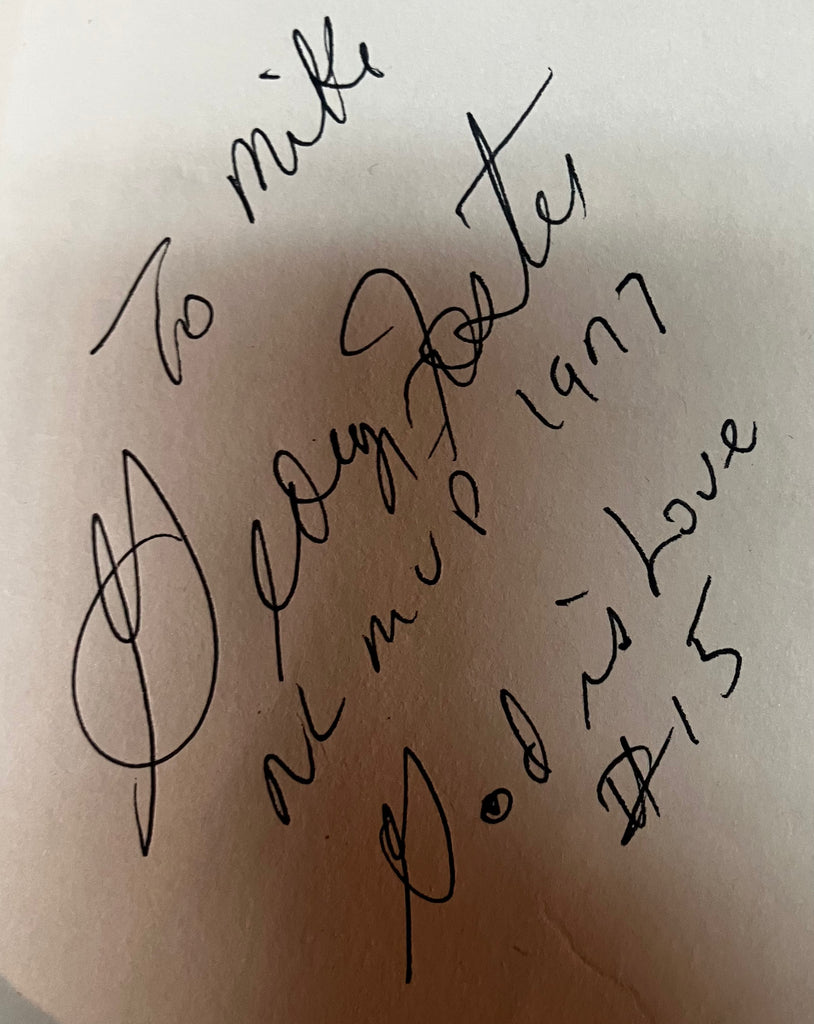 To Mike
George Foster
NL MVP 1977
God is Love
#15